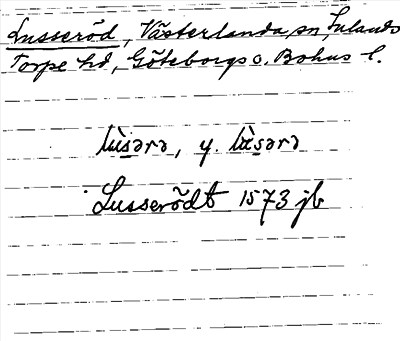 Lusseröd, Västerlanda sn, Inlands
Torpe hd, Göteborgs o. Bohus l.
lùsərə, y. lœ̀sərə
Lusserödt 1573 jb